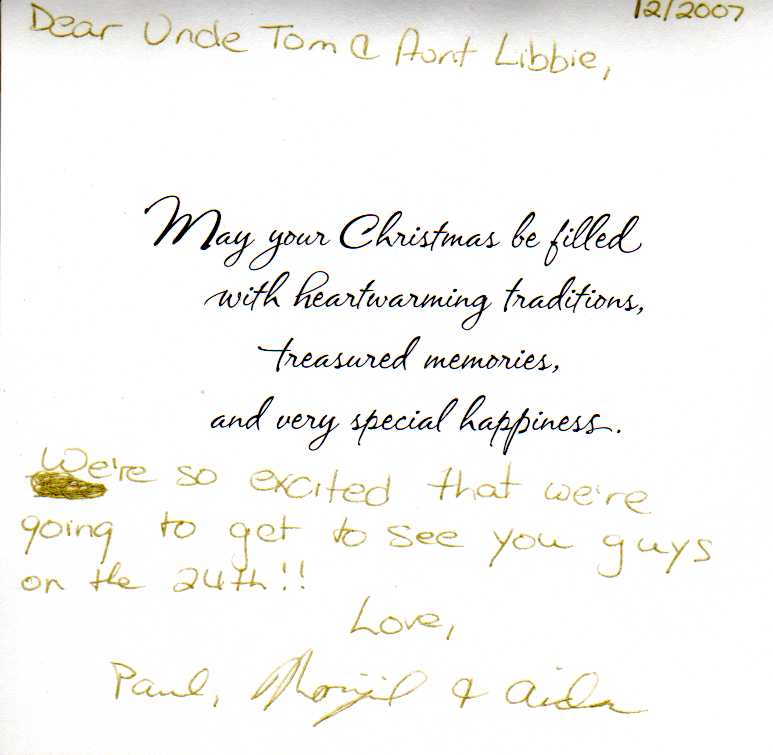 12/2007
Dear Uncle Tom & Aunt Libbie,
May your Christmas be filled
with heartwarming traditions,
treasured memories,
and very special happiness.
We're so excited that we're
going to get to see you guys
on the 24th!!
Love,
Paul, & Aida